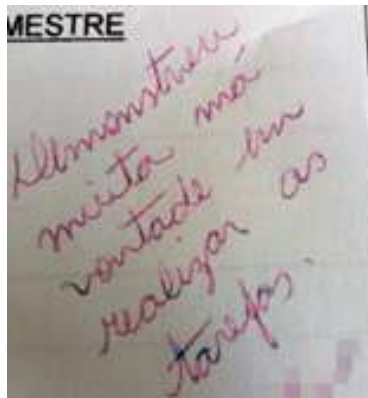 MESTRE
Demonstrou
muita má
vontade em
realizar as
tarefas.